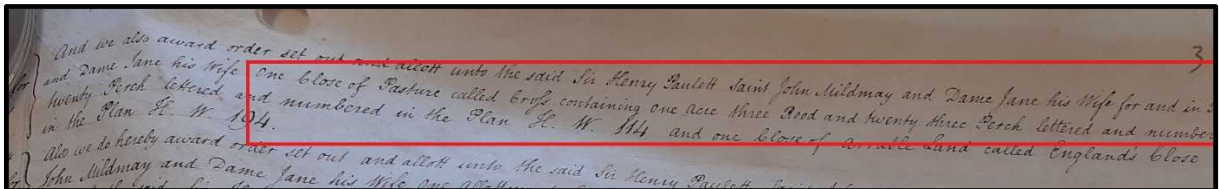 3
And we also award order set out and allott unto the said Sir Henry Paulett Saint John Mildmay and Dame Jane his Wife for and in
for and Dame Jane his Wife One Close of Pasture called Croſs containing one acre three Rood and twenty three Perch lettered and number
twenty Perch lettered and numbered in the Plan H. W. 114 and one Close of Arrable Land called England's Close
in the Plan H. W. 194.
Also we do hereby award order set out and allott unto the said Sir Henry Paulett
John Mildmay and Dame Jane his Wife One
the said Sir